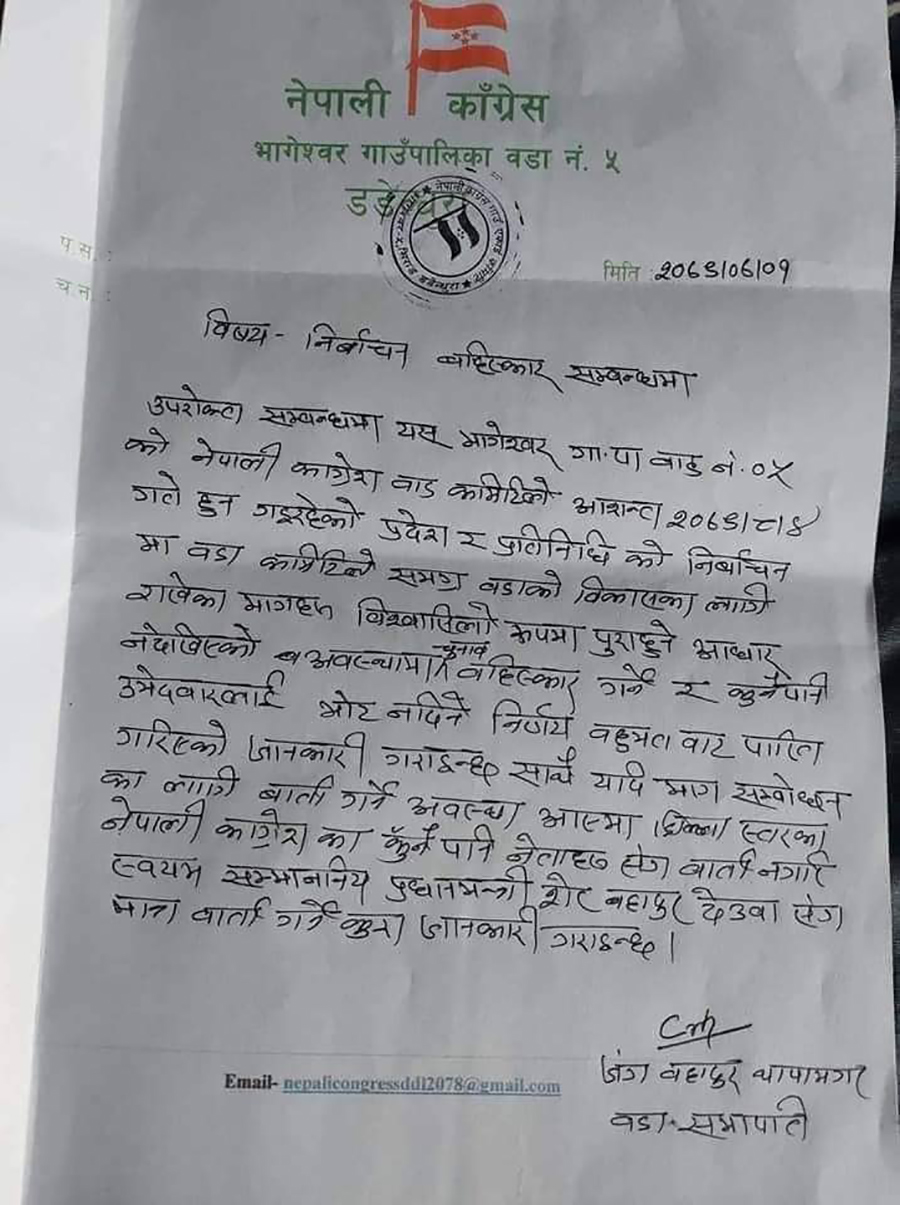 नेपाली काँग्रेस
भागेश्वर गाउँपालिका वडा नं. ५
डडेल्धुरा
प.स. :
च.न. :
मिति :२०७९।०७।०१
विषय- निर्वाचन बहिस्कार सम्बन्धमा
उपरोक्त सम्बन्धमा यस भागेश्वर गा.पा वाड नं. ०५
को नेपाली काग्रेश वाड कमिटिले आशन्न २०७९।८।४
गते हुन गइरहेको प्रदेश र प्रतिनिधि को निर्बाचन
मा वडा कमिटिले समग्र वडाको विकासका लागि
राखेका मागहरु विश्वासिलो रुपमा पुराहुने आधार
नदेखिएको अवस्थामा चुनाव वहिस्कार गर्ने र कुनैपनी
उमेदवारलाई भोट नदिने निर्णय वहुमत वाट पारित
गरिएको जानकारी गराइन्छ साथै यदि माग सम्वोधन
का लागि बार्ता गर्ने अवस्था आएमा जिल्ला स्तरका
नेपाली काग्रेश का कुनै पनि नेताहरु संग वार्ता नगरि
स्वयम सम्माननिय प्रधानमन्त्री शेर बहादुर देउवा संग
मात्र वार्ता गर्ने कुरा जानकारी गराइन्छ।
जंग वहादुर थापामगर
वडा सभापति
Email- nepalicongressddl2078@gmail.com